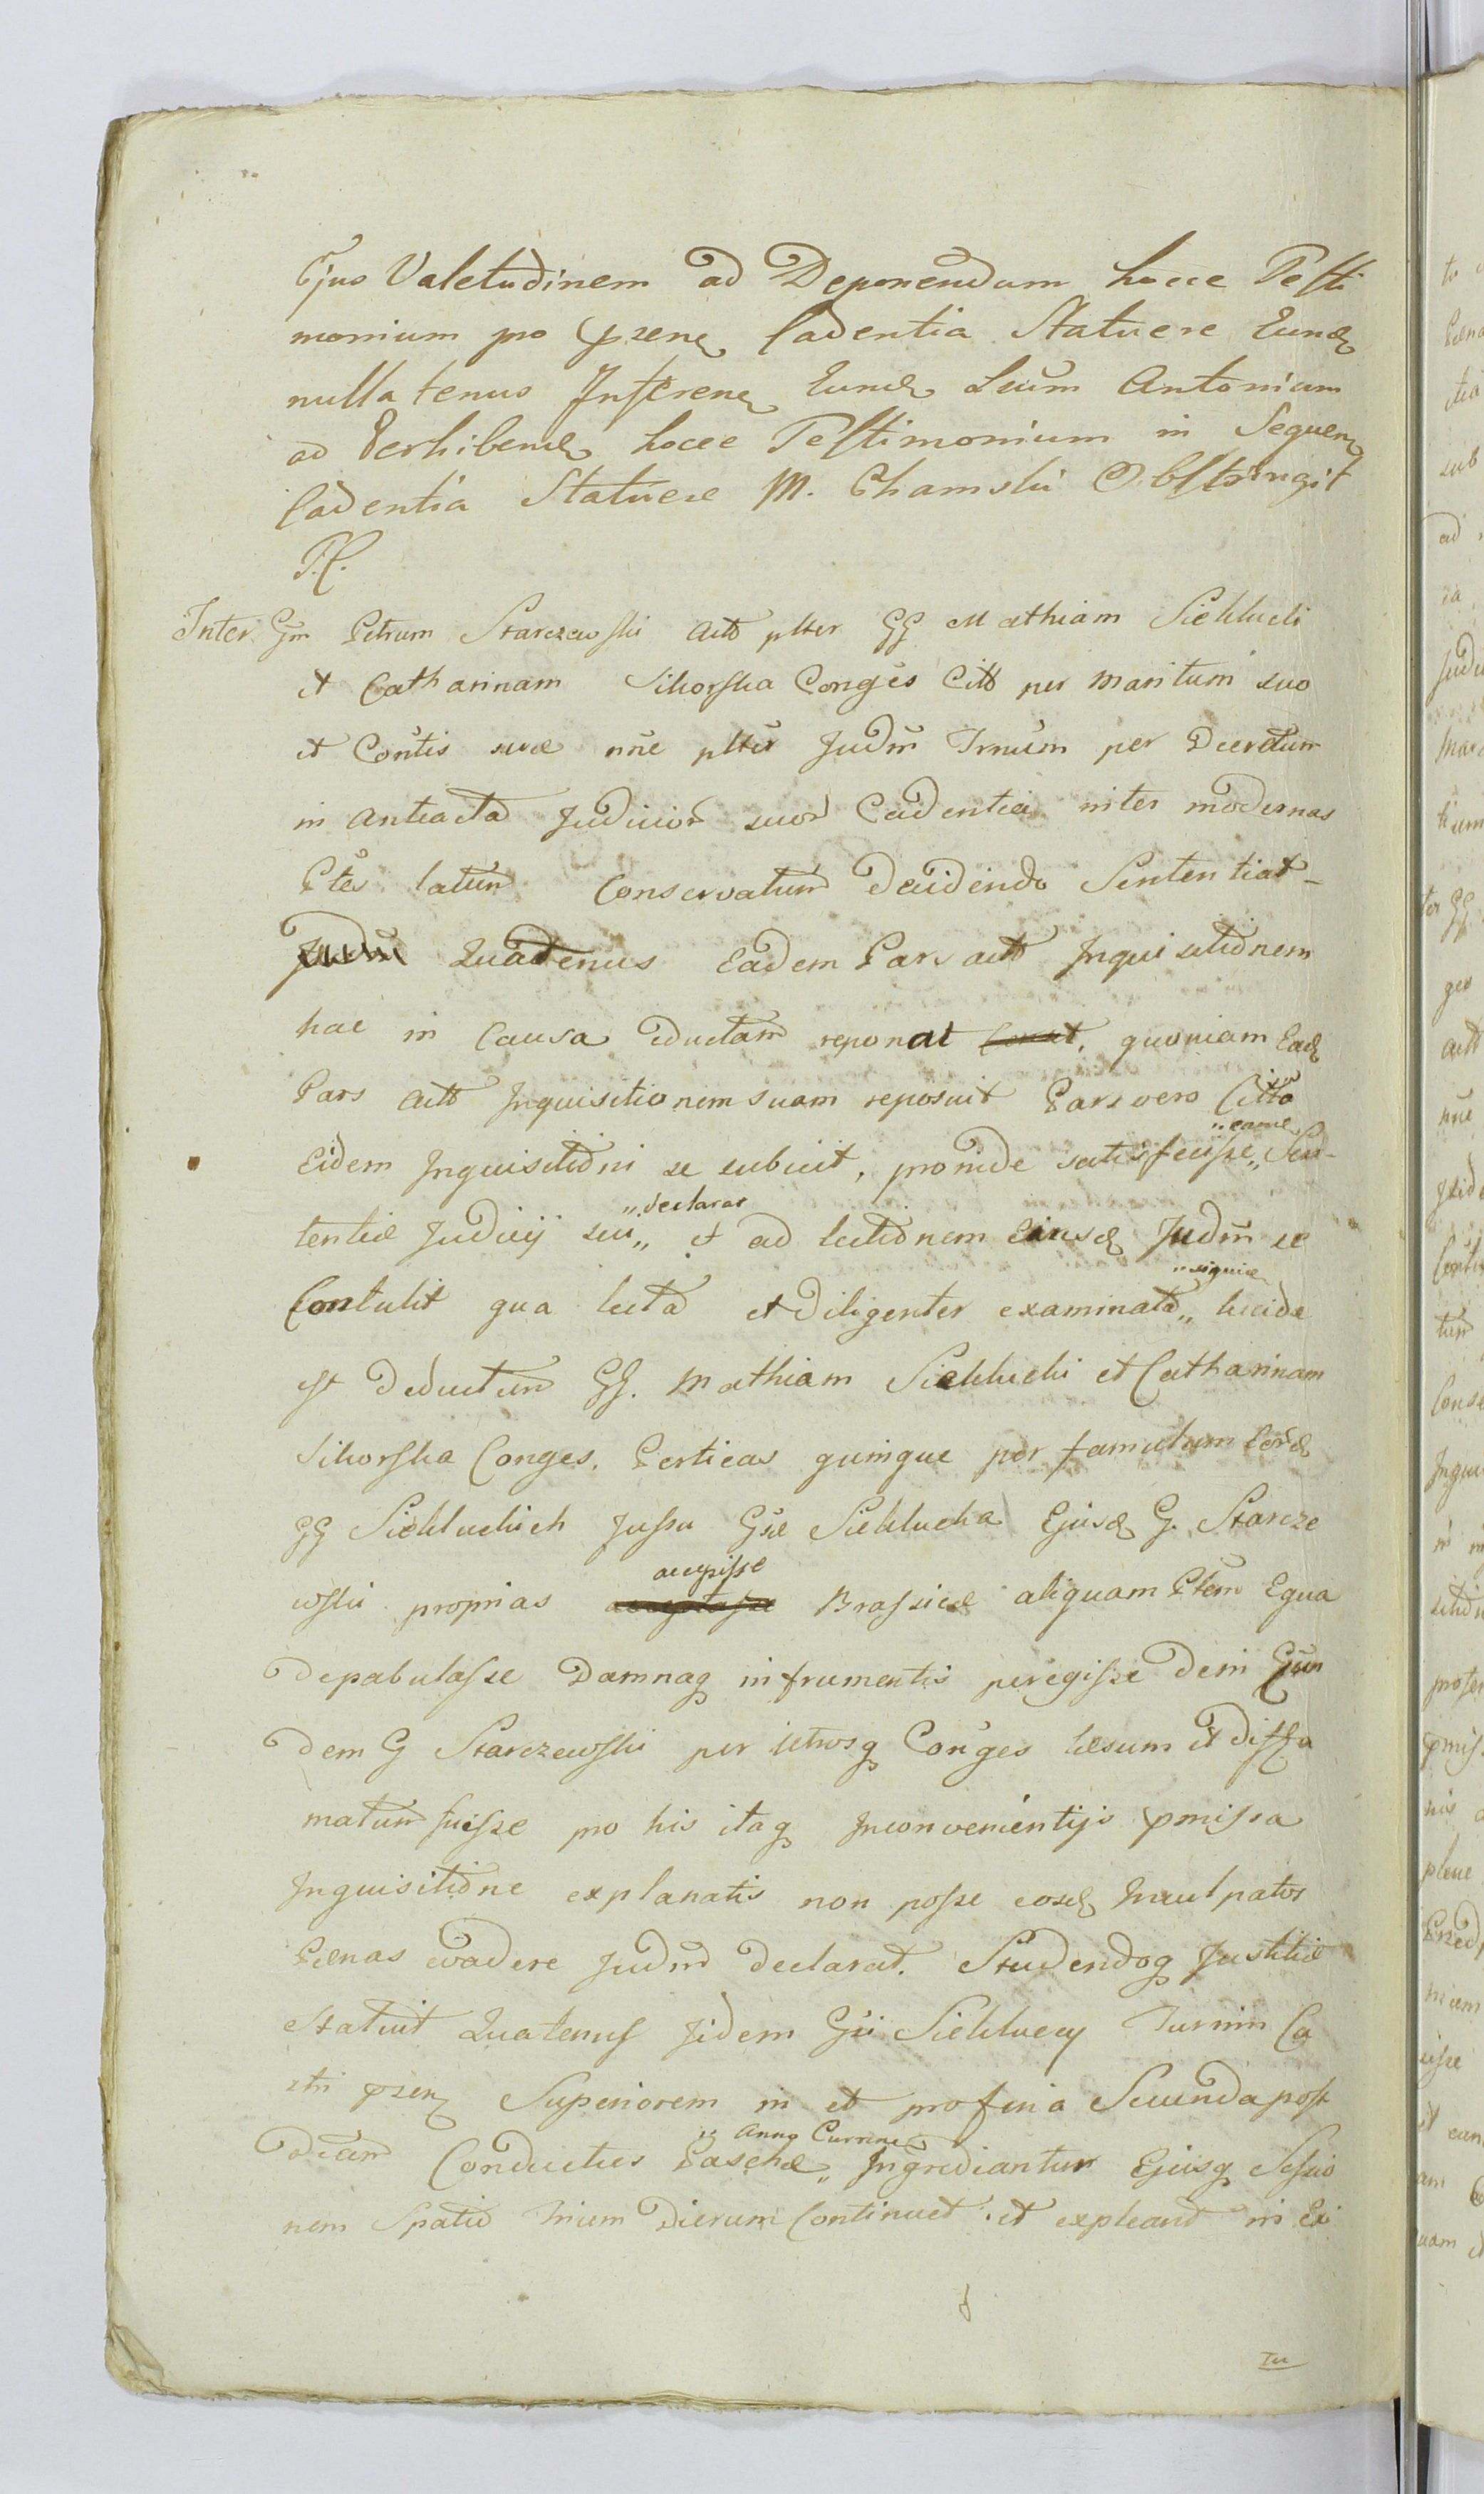 Ejus Valetudinem ad Deponendum hocce Testi
monium pro psenq Cadentia Statuere Eundq
nulla tenus Inserenq Eundq Leum Antonium
ad Perhibendq hocce Testimonium in Sequenq
Cadentia Statuere M. Chamski Obstringit
P.C.
Inter Gm Petrum Starczewski Actt plter GG Mathiam Siekłucki
et Catharinam Sikorska Conges Citt per maritum suo
et Contis suæ nne plter Judm Trnum per Decretum
in anteacta Judicior suor Cadentia inter modernas
Ptes latum Conservatum Decidendo Sententiat
Quatenus Eadem Pars actt Inquisitionem
hac in Causa eductam reponat quoniam Eadq
Pars actt Inquisitionem suam reposuit Pars vero Citta
"eamq
Eidem Inquisitioni se subiicit, proinde satisfecisse" Sen-
"declarat
tentiæ Judicij sui" et ad lectionem Eiusdq Judm se
Contulit qua lecta et Diligenter examinata" lucide
est Deductum GG. Mathiam Siekłucki et Catharinam
Sikorska Conges. Perticas quinque per famulum Eordq
GG Siekłuckich Jussu Gsæ Siekłucka Ejusdq G. Starcze
accepisse
wski proprias Brassicæ aliquam Ptem Equa
Depabulasse Damnaq in frumentis peregisse Dein Eun
dem G Starczewski per Utrosq Conges læsum et Diffa
matum fuisse pro his itaq Inconvenientijs pmissa
Inquisitione explanatis non posse eosdq Inculpatos
Pænas evadere Judm declarat. Studendoq Justitiæ
statuit Quatenus Iidem Gii Siekłuccy Turrim Ca
stri psenq Superiorem in et pro feria Secunda post
" Anno Currenq
Diem Conductus Paschæ" Ingrediantur Ejusq Sessio
nem Spatio trium Dierum Continuet et expleant in Ex